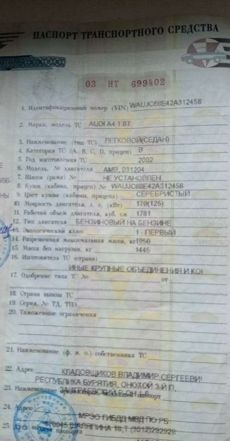 ПАСПОРТ ТРАНСПОРТНОГО СРЕДСТВА
03 НТ 699402
1. Идентификационный номер (VIN) WAUJC68E42A312458
2. Марка, модель ТС AUDI A4 1.8T
3. Наименование (тип ТС) ЛЕГКОВОЙ(СЕДАН)
4. Категория ТС (A, B, C, D, прицеп) B
5. Год изготовления ТС 2002
6. Модель, № двигателя AMB, 031204
7. Шасси (рама) № НЕ УСТАНОВЛЕН
8. Кузов (кабина, прицеп) № WAUJC68E42A312458
9. Цвет кузова (кабины, прицепа) СЕРЕБРИСТЫЙ
10. Мощность двигателя, л. с. (кВт) 170(125)
11. Рабочий объем двигателя, куб. см 1781
12. Тип двигателя БЕНЗИНОВЫЙ НА БЕНЗИНЕ
13. Экологический класс 1 - ПЕРВЫЙ
14. Разрешенная максимальная масса, кг 1950
15. Масса без нагрузки, кг 1445
16. Изготовитель ТС (страна)
ИНЫЕ КРУПНЫЕ ОБЪЕДИНЕНИЯ И КО
17. Одобрение типа ТС № от
18. Страна вывоза ТС
19. Серия, № ТД, ТПО
20. Таможенные ограничения
21. Наименование (ф. и. о.) собственника ТС
КЛАДОВЩИКОВ ВЛАДИМИР СЕРГЕЕВИЧ
22. Адрес
РЕСПУБЛИКА БУРЯТИЯ,
23. Наименование
24. Адрес МРЭО ГИБДД МВД ПО РБ